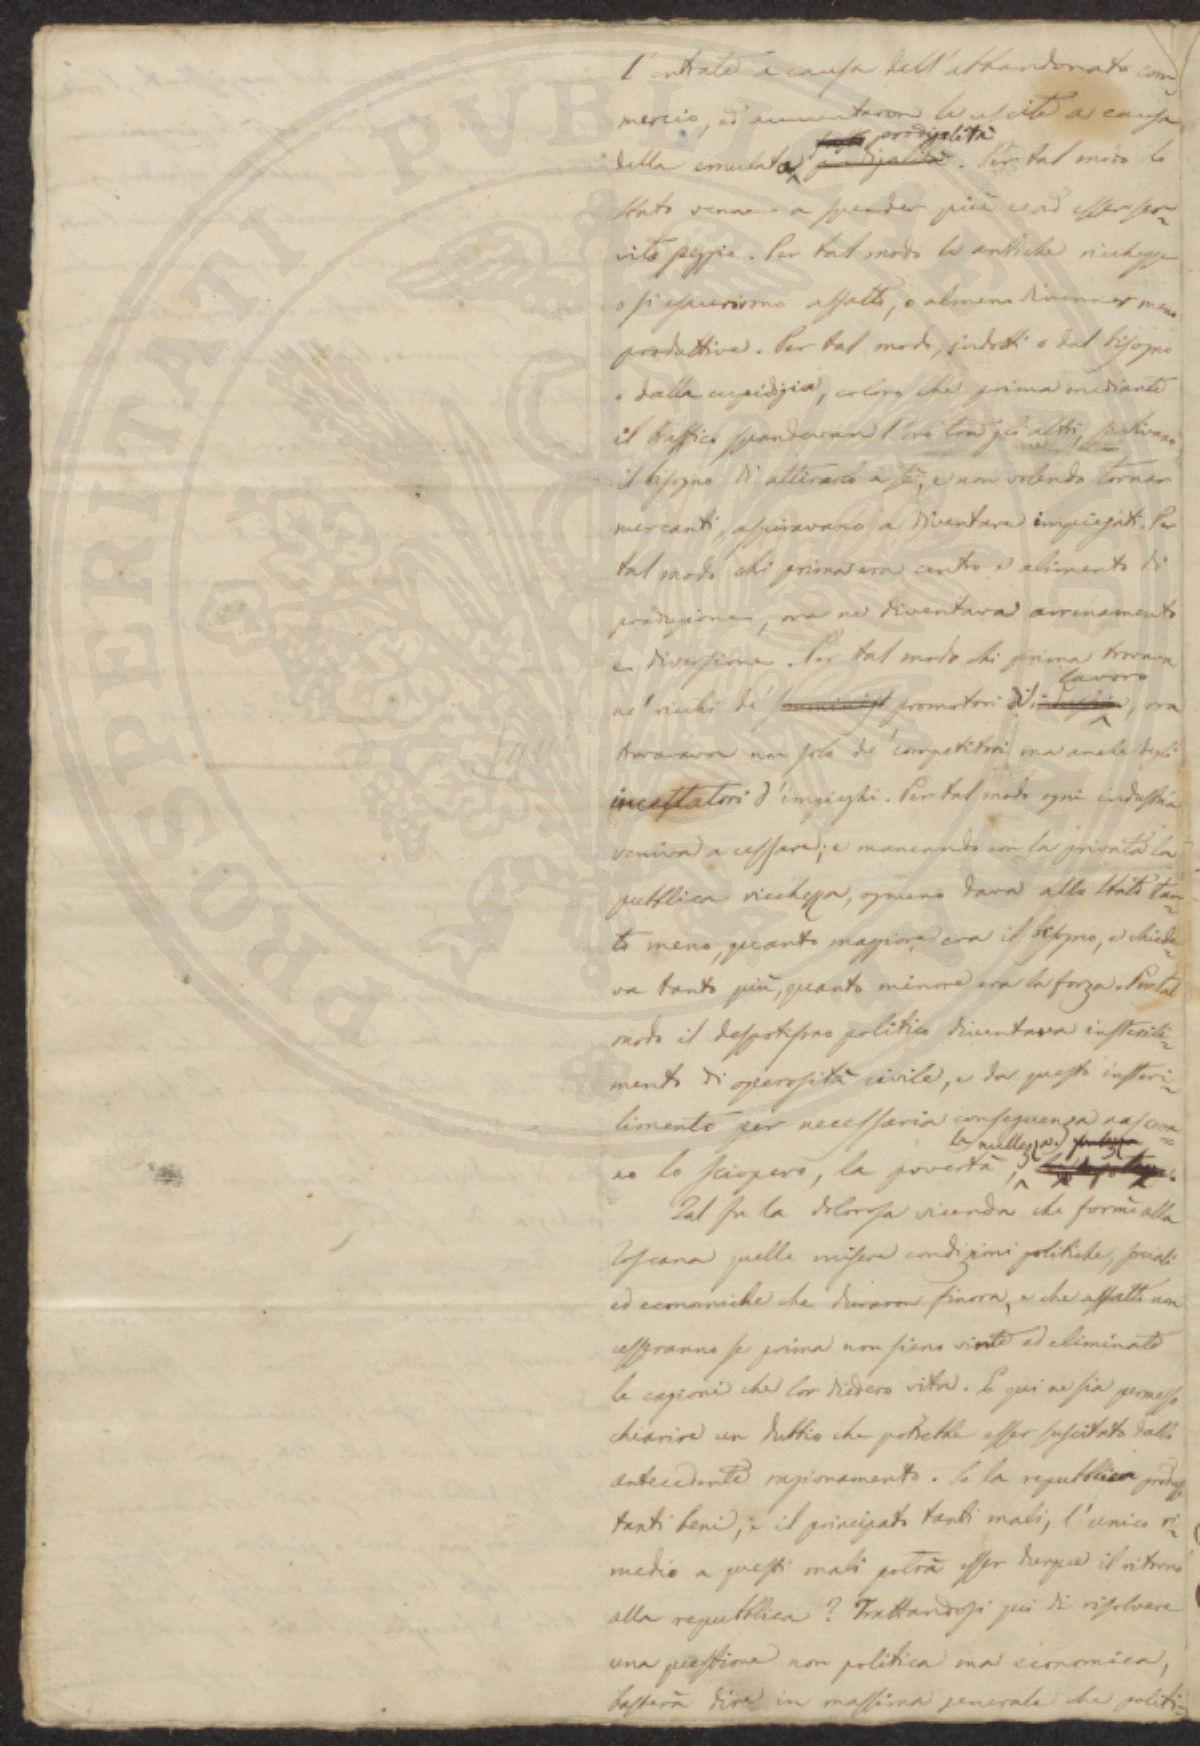 l'entrate a causa dell'abbandonato com-
mercio, ed aumentaron le uscite a causa
della emulata prodigalità. Per tal modo lo
Stato venne a spender più e ad esser ser-
vito peggio. Per tal modo le antiche ricchezze
o si esaurirono affatto, o almeno divenner meno
produttive. Per tal modo, indotti o dal bisogno
o dalla cupidigia, coloro che prima mediante
il traffico spandevan l'oro tra gli altri, sentivano
il bisogno di attirarlo a sé, e non volendo tornar
mercanti, aspiravano a diventare impiegati. Per
tal modo chi prima era centro e alimento di
produzione, ora ne diventava arrenamento
e diversione. Per tal modo chi prima trovava
ne' ricchi de' promotori di lavoro, ora
trovava non solo de' competitori ma anche degli
incettatori d'impieghi. Per tal modo ogni industria
veniva a cessare; e mancando con la privata la
pubblica ricchezza, ognuno dava allo Stato tan-
to meno, quanto maggiore era il bisogno, e chiede-
va tanto più, quanto minore era la forza. Per tal
modo il despotismo politico diventava insterili-
mento di operosità civile, e da questo insteri-
limento per necessaria conseguenza nascon-
no lo sciopero, la povertà, la nullezza.
Tal fu la dolorosa vicenda che formò alla
Toscana quelle misere condizioni politiche, sociali
ed economiche che duraron finora, e che affatto non
cesseranno se prima non sieno vinte ed eliminate
le cagioni che lor diedero vita. E qui ne sia permesso
chiarire un dubbio che potrebbe esser suscitato dallo
antecedente ragionamento. Se la repubblica produsse
tanti beni, e il principato tanti mali, l'unico ri-
medio a questi mali potrà esser dunque il ritorno
alla repubblica? Trattandosi qui di risolvere
una questione non politica ma economica,
basterà dire in massima generale che politi-
PROSPERITATI PVBLICAE